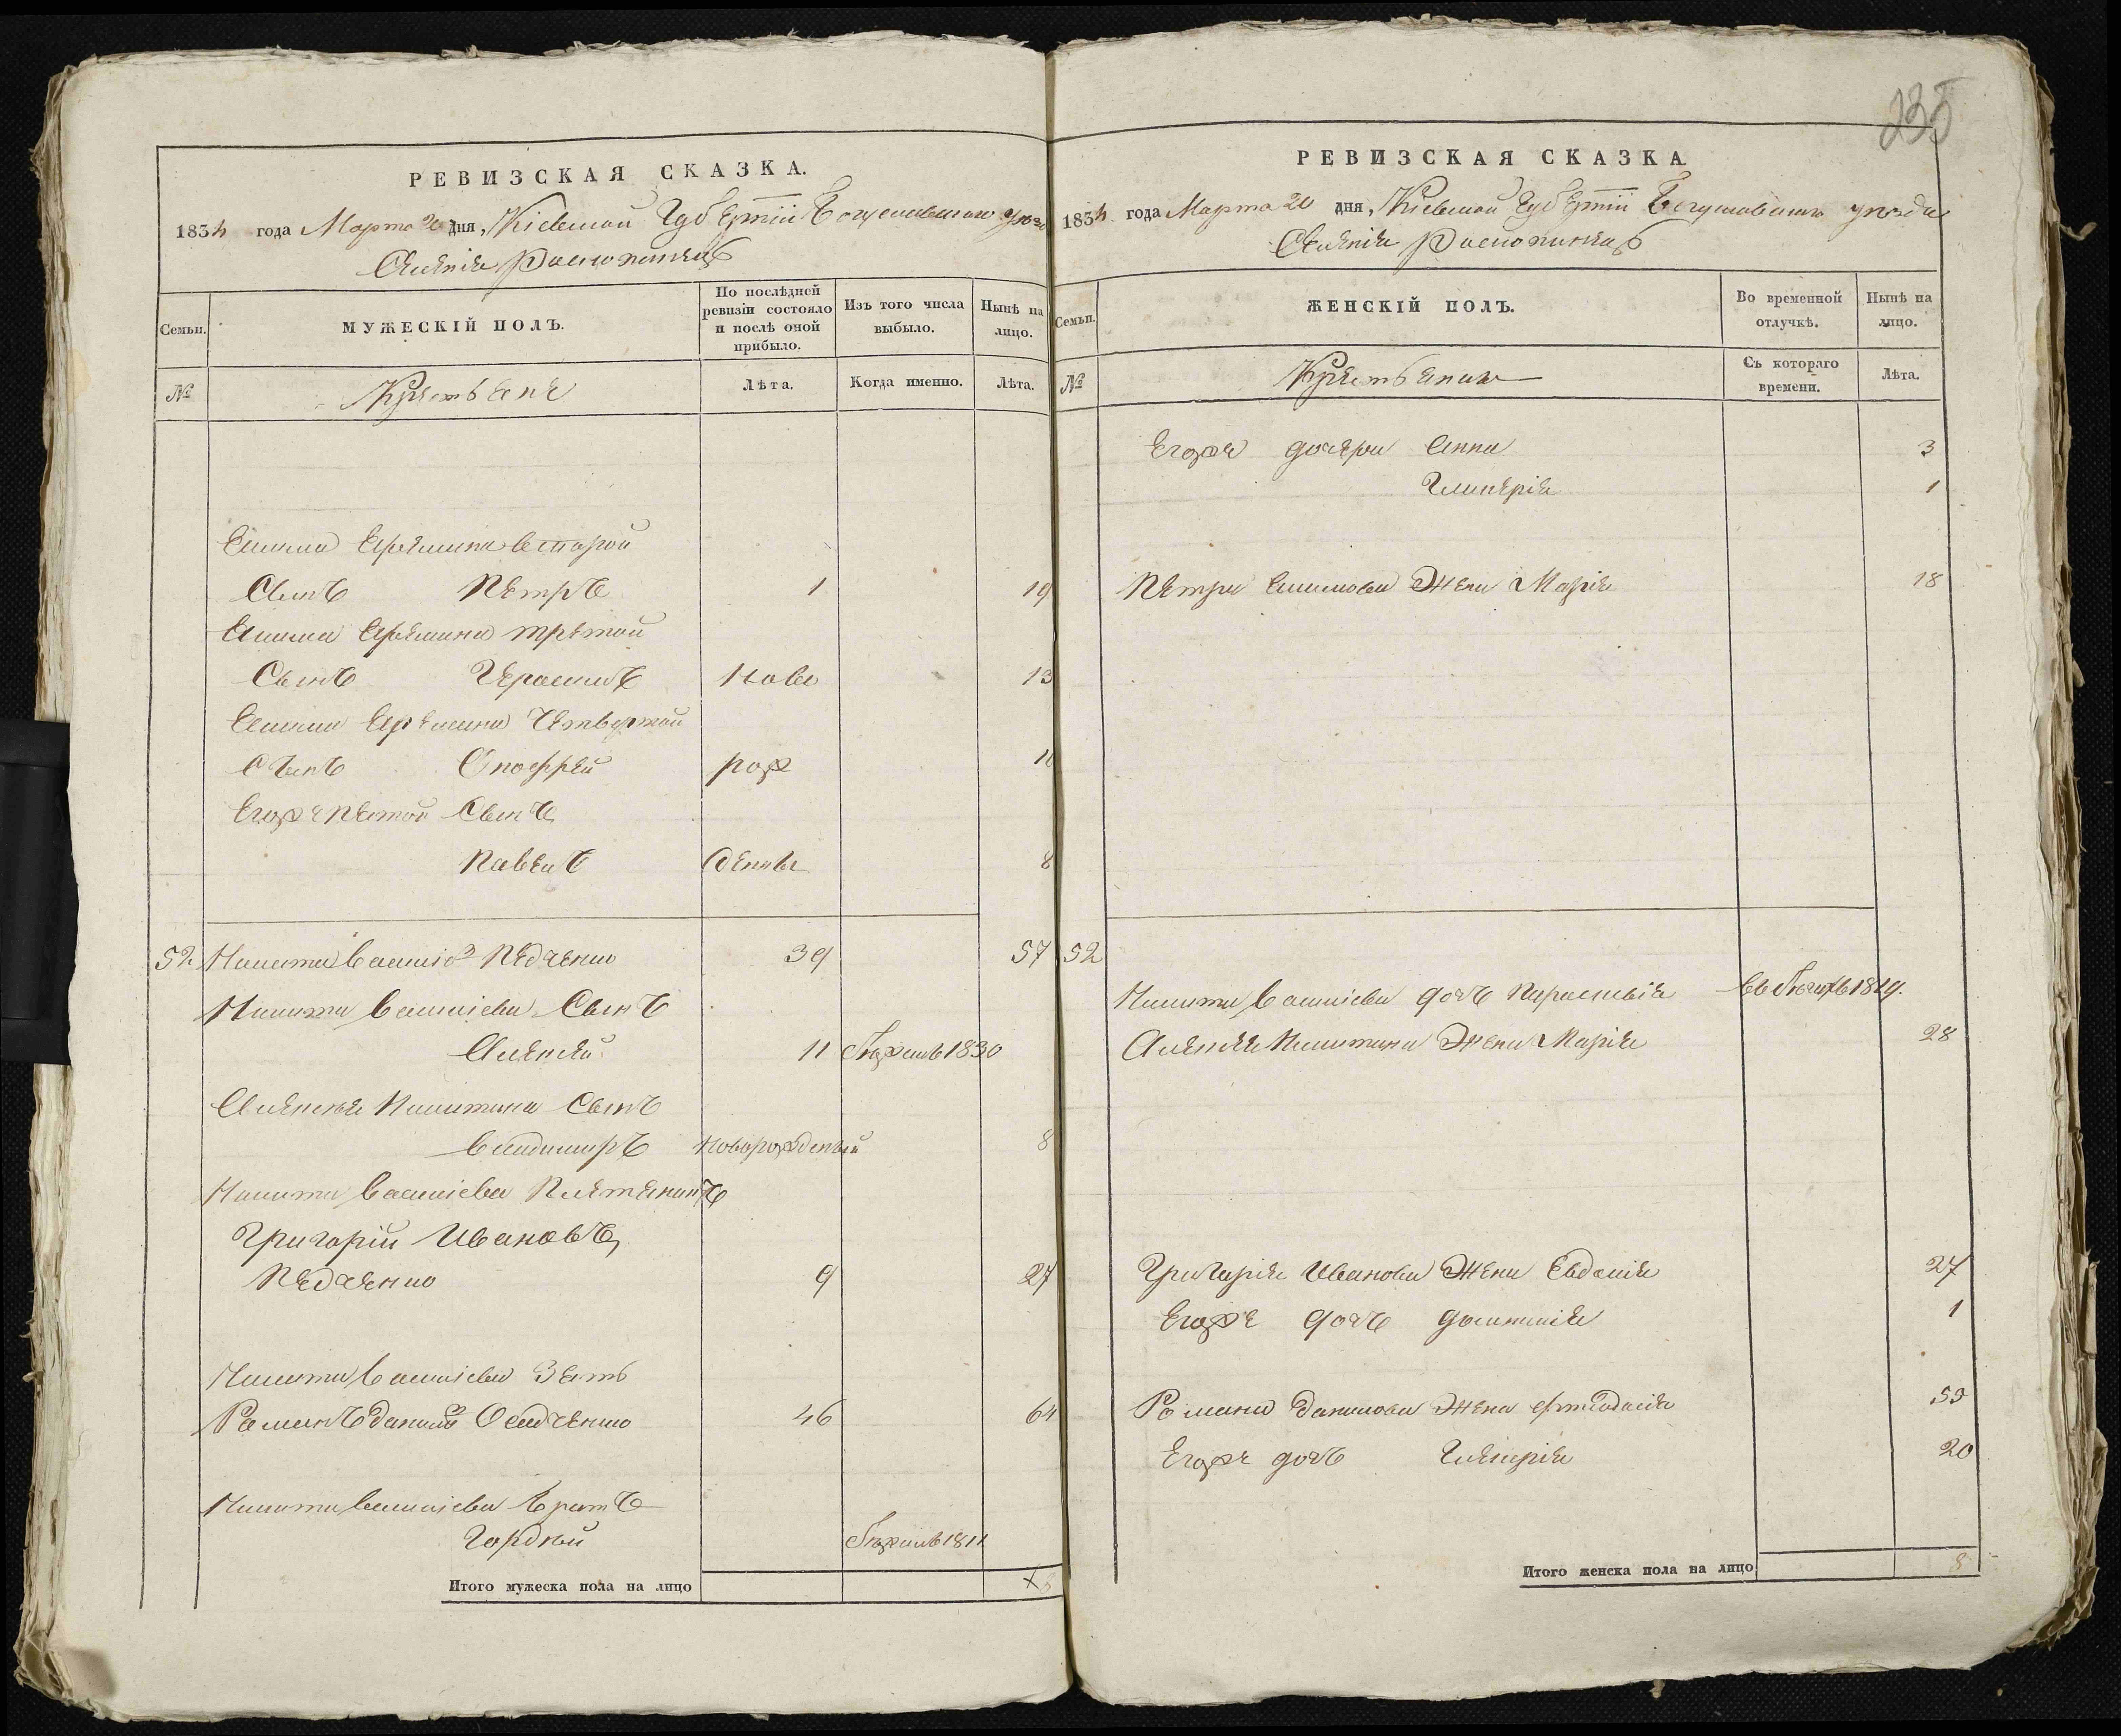 235
РЕВИЗСКАЯ СКАЗКА.
1834 года Марта 20 дня, Кіевской Губерніи Богуславскаго уезд
Селенія Расхопинецъ
Семьи.
МУЖЕСКІЙ ПОЛЪ.
По послѣдней ревизіи состояло и послѣ оной прибыло.
Изъ того числа выбыло.
Нынѣ на лицо.
№
Крестьяне
Лѣта.
Когда именно.
Лѣта.
второй
Сынъ Петръ 1 19
третой
Сынъ Герасимъ Ново 13
четвертой
Сынъ Онофрей рож 10
Егоже пятой Сынъ
Павелъ денны 8
52 Никита Васил. Педченко 39 57
Никиты Васильева Сынъ
Алексей 11 1830
Алексея Никитина Сынъ
Владимиръ новорожденый 8
Никиты Васильева Племяникъ
Григорій Ивановъ
Педченко 9 27
Никиты Васильева Зять
Романъ Данилов Осадченко 46 64
Никиты Васильева Братъ
Гордѣй 1811
Итого мужеска пола на лицо 8
РЕВИЗСКАЯ СКАЗКА.
1834 года Марта 20 дня, Кіевской Губерніи Богуславскаго уезда
Селенія Расхопинецъ
Семьи.
ЖЕНСКІЙ ПОЛЪ.
Во временной отлучкѣ.
Нынѣ на лицо.
№
Крестьянки
Съ котораго времени.
Лѣта.
Егоже дочери Анна 3
Гликерія 1
Петра жена Марія 18
52
Никиты Васильева дочь Параскевія въ бегахъ 1819.
Алексея Никитина Жена Марія 28
Григорія Иванова Жена Евдокія 27
Егоже дочь Домникія 1
Романа Данилова Жена 59
Егоже дочь Гликерія 20
Итого женска пола на лицо 8